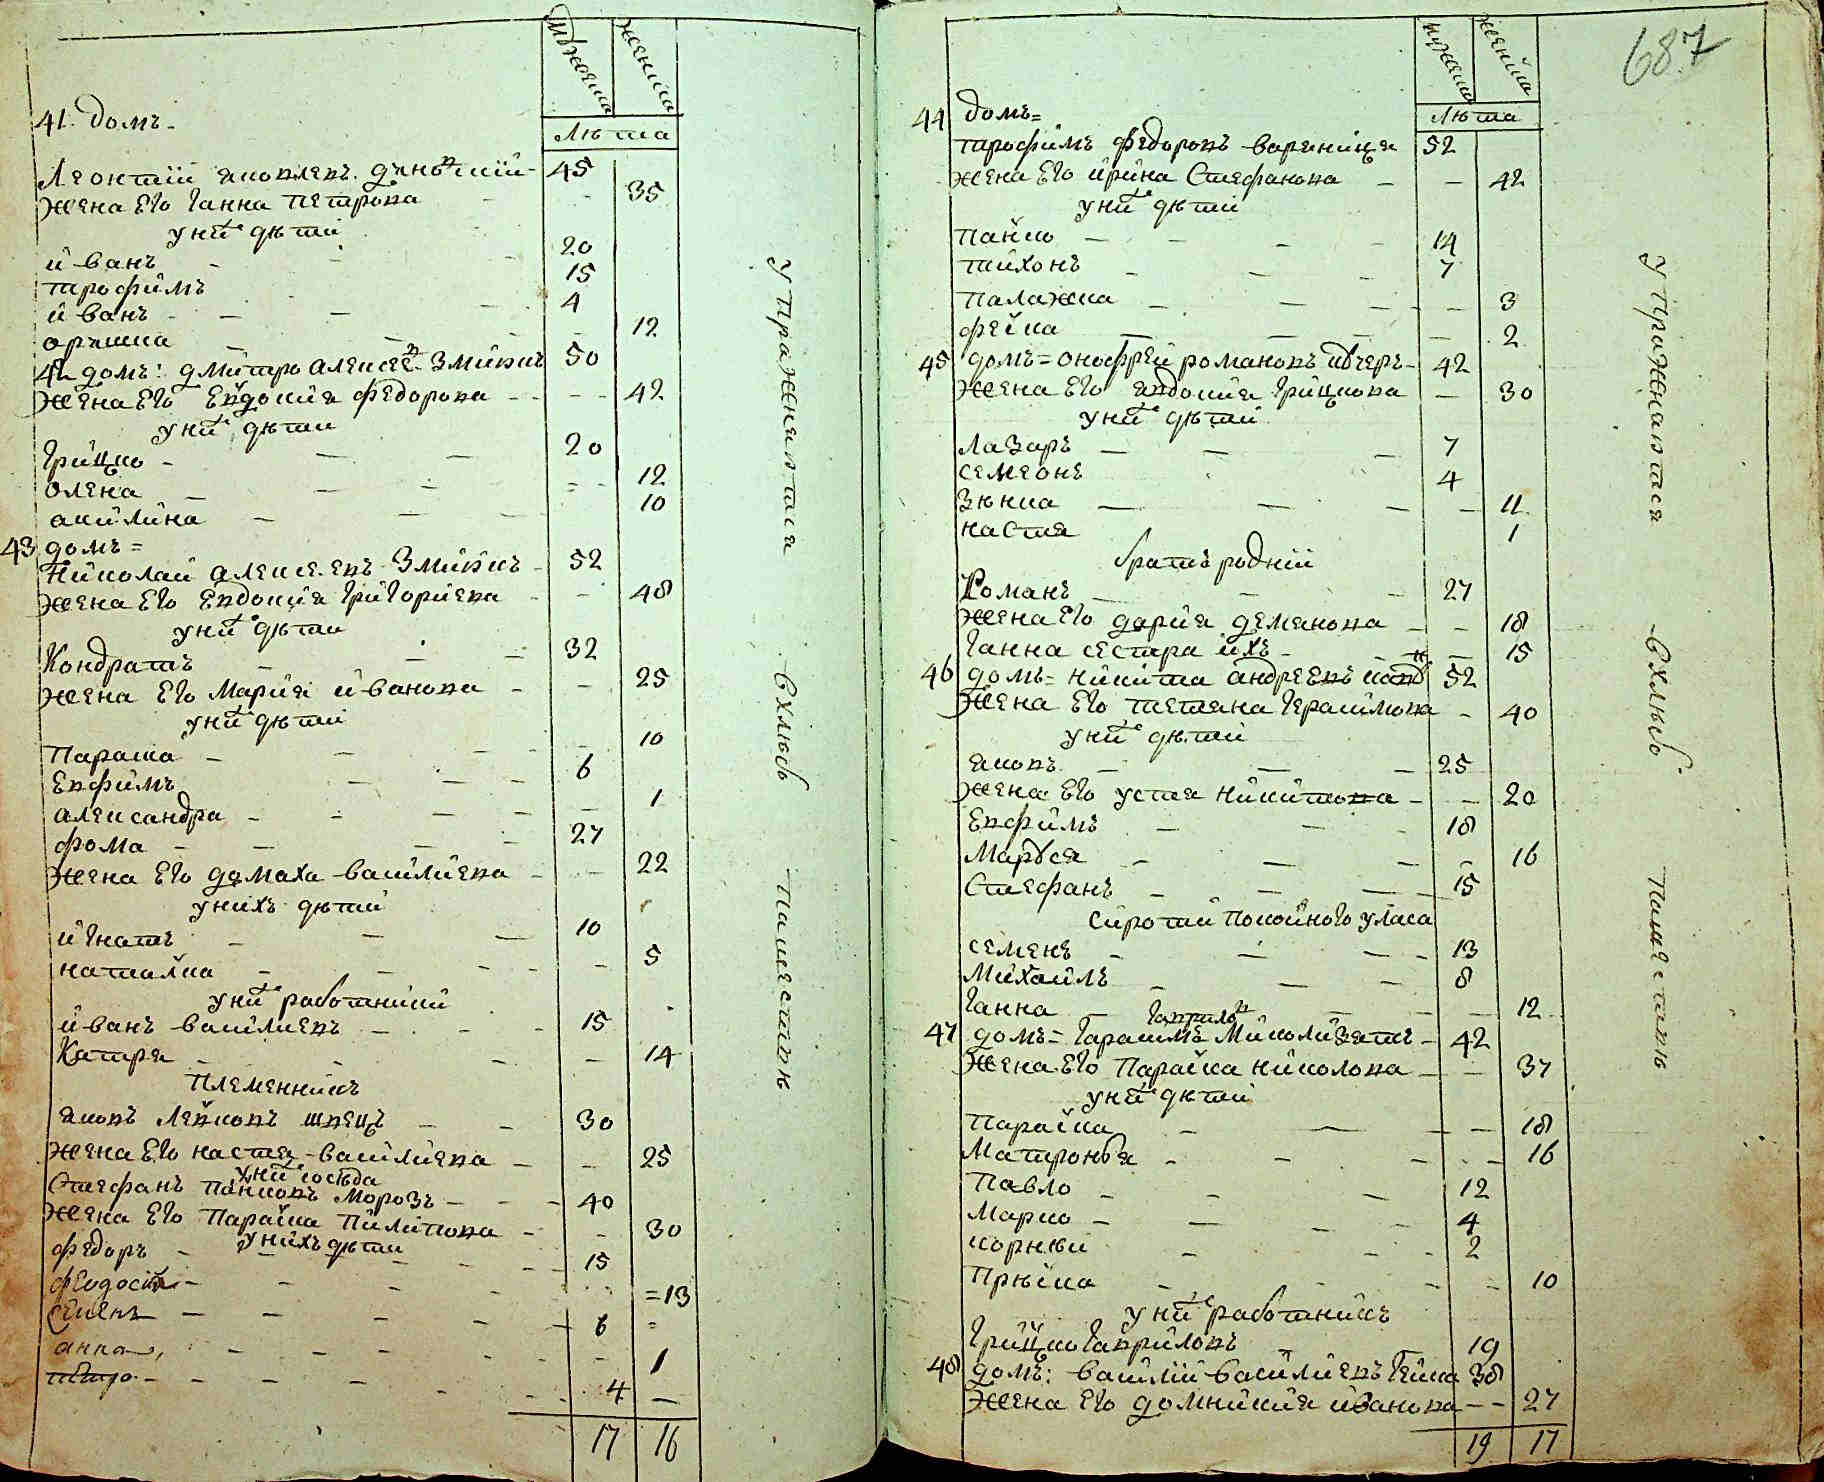 мужеска женска
Лѣта
41. домъ
Леонтий яковлевъ
45
жена Его Ганна Петрова - - 35
у них дѣти
иванъ - 20
трофимъ 15
иванъ - - - 4
оришка - - - 12
42 домъ: дмитро алексеев Змиивъ 50
жена Его Евдокия Федорова - - - 42
у них дѣти
Грицко - - - 20
олена - - - 12
акилина - - - 10
43 домъ=
Николай алексеевъ Змиивъ - 52
жена Его Евдокия Григориева - - 48
у них дѣти
Кондратъ - - - 32
жена Его Мария иванова - - 25
у них дѣти
Параска - - - 10
Евфимъ - - - 6
александра - - - - 1
фома - - - 27
жена Его домаха василиева - - 22
у нихъ дѣти
игнатъ - - - 10
наталка - - - - 5
у них работники
иванъ василиевъ - - - 15
Катря - - - - 14
Племенникъ
яковъ Левковъ швецъ - - 30
жена Его настя василиева - - 25
у них сосѣда
Стефанъ Панковъ Морозъ - - 40
жена Его Параска Пилипова - - 30
у нихъ дѣти
федоръ - - - 15
феодосия - - - = 13
Семенъ - - - 6 =
анна, - - - - 1
петро - - - - 4 -
17 16
у Пражнавтся
в хлѣбо
Памяетавѣ
687
мужеска женска
Лѣта
44 домъ=
трофимъ Федоровъ вареница 52
жена Его ирина Стефанова - - 42
у них дѣти
Панко - - - 14
тихонъ - - - 7
Палажка - - - - 3
фенка - - - - 2
45 домъ= онофрей романовъ 42
жена Его явдокия Грицкова - 30
у них дѣти
Лазаръ - - - 7
семеонъ 4
Зѣнка - - - - 11
настя 1
братъ родний
Романъ - - - 27
жена Его дария демянова - - 18
Ганна сестра ихъ - - - 15
46 домъ= никита андреевъ 52
жена Его тетяна Герасимова - 40
у них дѣти
яковъ - - - 25
жена Его устя никитова - - 20
Евфимъ - - - 18
Маруся - - - - 16
Стефанъ - - - 15
сироти Покойного уласа
семенъ - - - 13
Михаилъ - - - 8
Ганна - - - - 12
Гаврилов
47 домъ= Гарасимъ - 42
жена Его Параска николова - - 37
у них дѣти
Параска - - - - 18
Матронья - - - - 16
Павло - - - 12
Марко - - - - 4
корнѣи - - - - 2
Прѣска - - - - 10
у них работникъ
Грицко Гавриловъ - - 19
48 домъ: василий василиевъ 38
жена Его домникия иванова - - 27
19 17
у Пражнавтся
в хлѣбо
Памяетавѣ